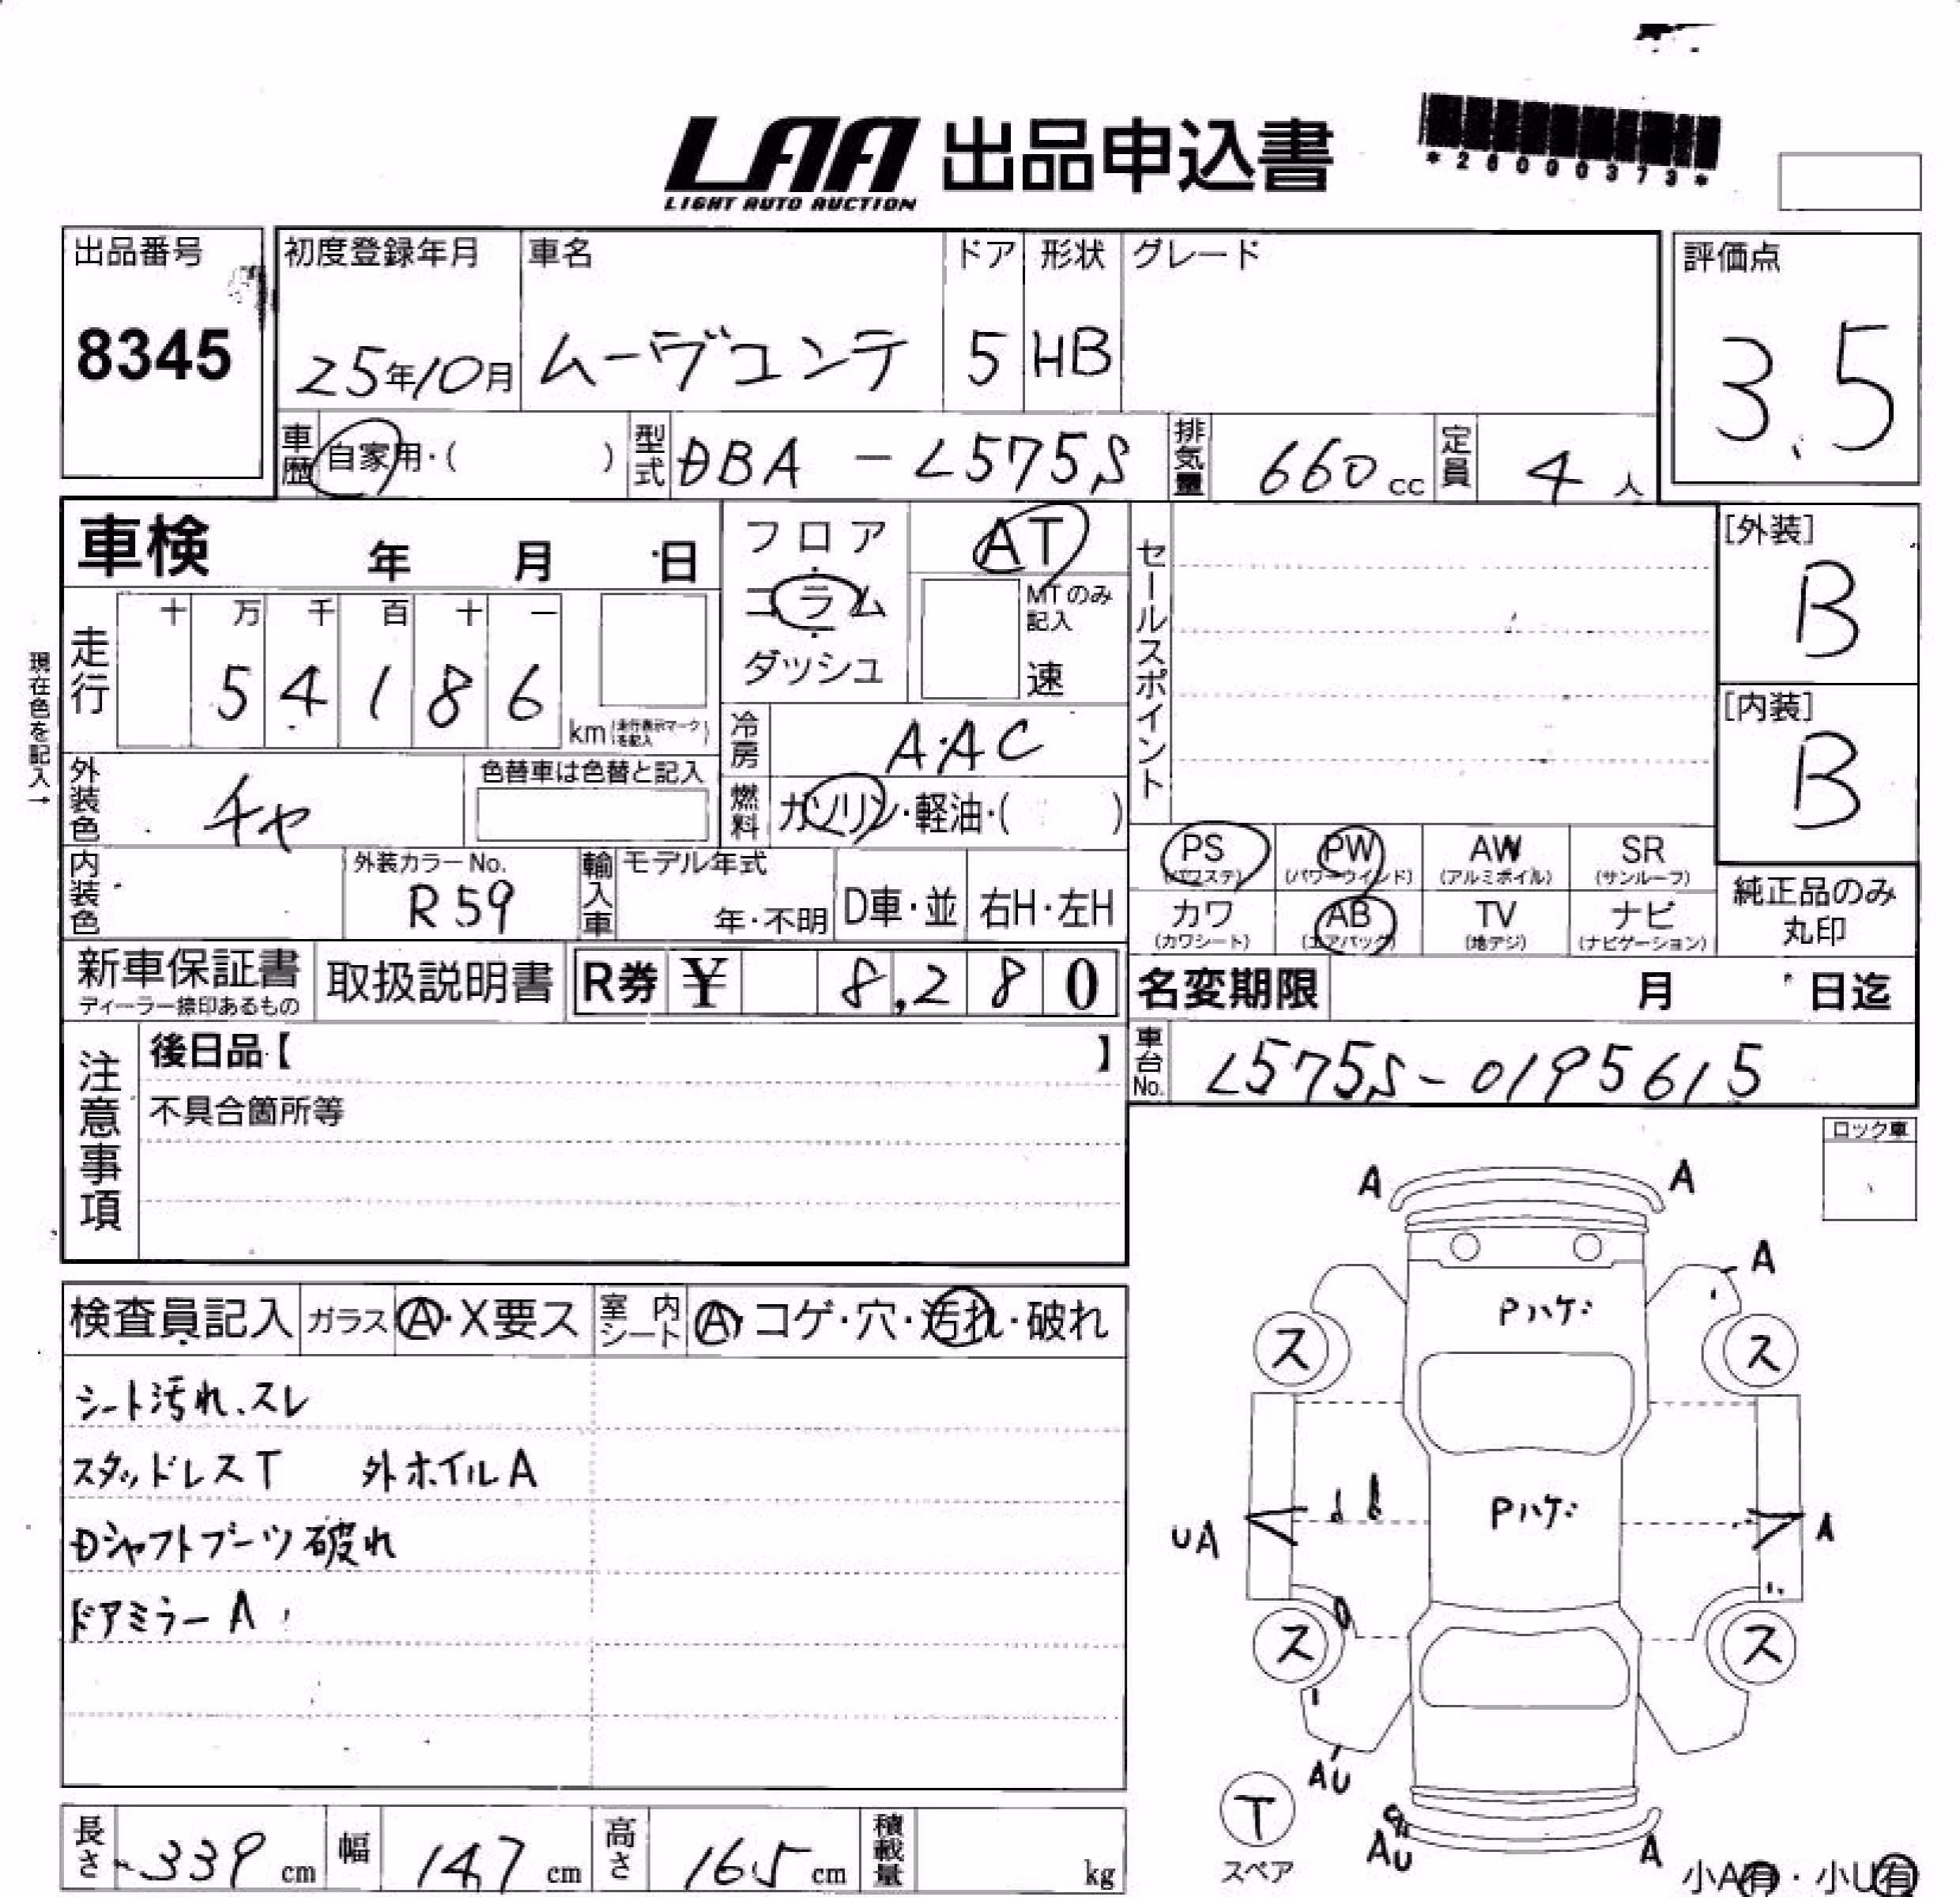 LAA 出品申込書
LIGHT AUTO AUCTION
*26000373*
出品番号
8345
初度登録年月
25年10月
車名
ムーヴコンテ
ドア
5
形状
HB
グレード
評価点
3.5
車歴
自家用・( )
型式
DBA - L575S
排気量
660 cc
定員
4 人
車検 年 月 日
フロア・コラム・ダッシュ
AT
MTのみ記入
速
セールスポイント
[外装]
B
[内装]
B
現在色を記入→
走行
十 万 千 百 十 一
5 4 1 8 6
km (走行表示マークを記入)
冷房
AAC
外装色
チャ
色替車は色替と記入
燃料
ガソリン・軽油・( )
内装色
外装カラーNo.
R59
輸入車
モデル年式
年・不明
D車・並
右H・左H
PS (パワステ)
PW (パワーウインド)
AW (アルミホイル)
SR (サンルーフ)
カワ (カワシート)
AB (エアバック)
TV (地デジ)
ナビ (ナビゲーション)
純正品のみ丸印
新車保証書
ディーラー捺印あるもの
取扱説明書
R券 ¥ 8,280
名変期限 月 日迄
車台No.
L575S-0195615
注意事項
後日品【 】
不具合箇所等
ロック車
検査員記入
ガラス
A・X要ス
室内シート
A・コゲ・穴・汚れ・破れ
シート汚れ、スレ
スタッドレスT 外ホイルA
Dシャフトブーツ破れ
ドアミラーA
A A
A
Pハゲ
ス ス
Pハゲ
UA
A
ス ス
AU
T
スペア
AU
A
小A有・小U有
長さ 339 cm
幅 147 cm
高さ 165 cm
積載量 kg